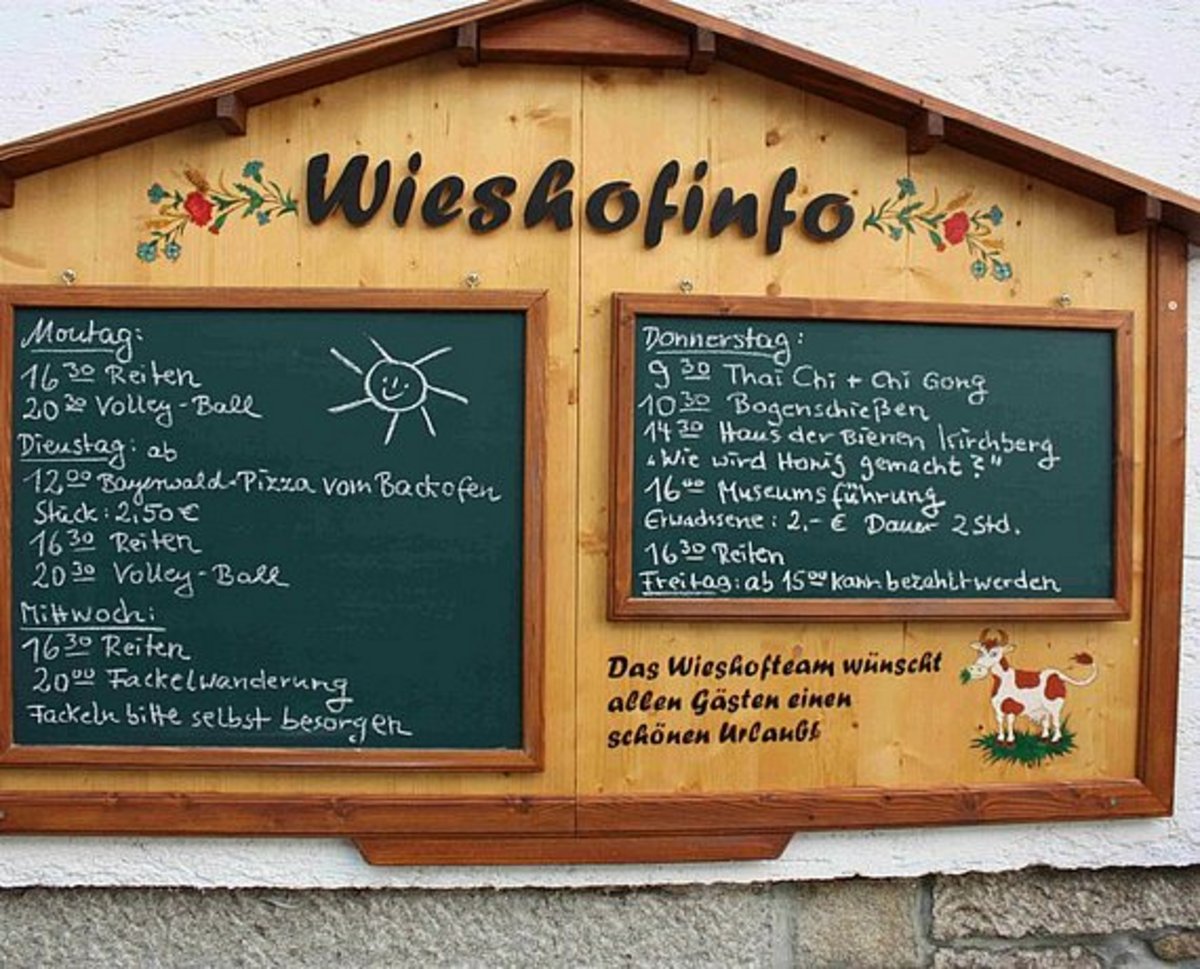 Wieshofinfo
Montag:
16 30 Reiten
20 30 Volley-Ball
Dienstag: ab
12 00 Bayerwald-Pizza vom Backofen
Stück: 2,50 €
16 30 Reiten
20 30 Volley-Ball
Mittwoch:
16 30 Reiten
20 00 Fackelwanderung
Fackeln bitte selbst besorgen
Donnerstag:
9 30 Thai Chi + Chi Gong
10 30 Bogenschießen
14 30 Haus der Bienen Kirchberg
„Wie wird Honig gemacht?"
16 00 Museumsführung
Erwachsene: 2,- € Dauer 2 Std.
16 30 Reiten
Freitag: ab 15 00 kann bezahlt werden
Das Wieshofteam wünscht
allen Gästen einen
schönen Urlaub!